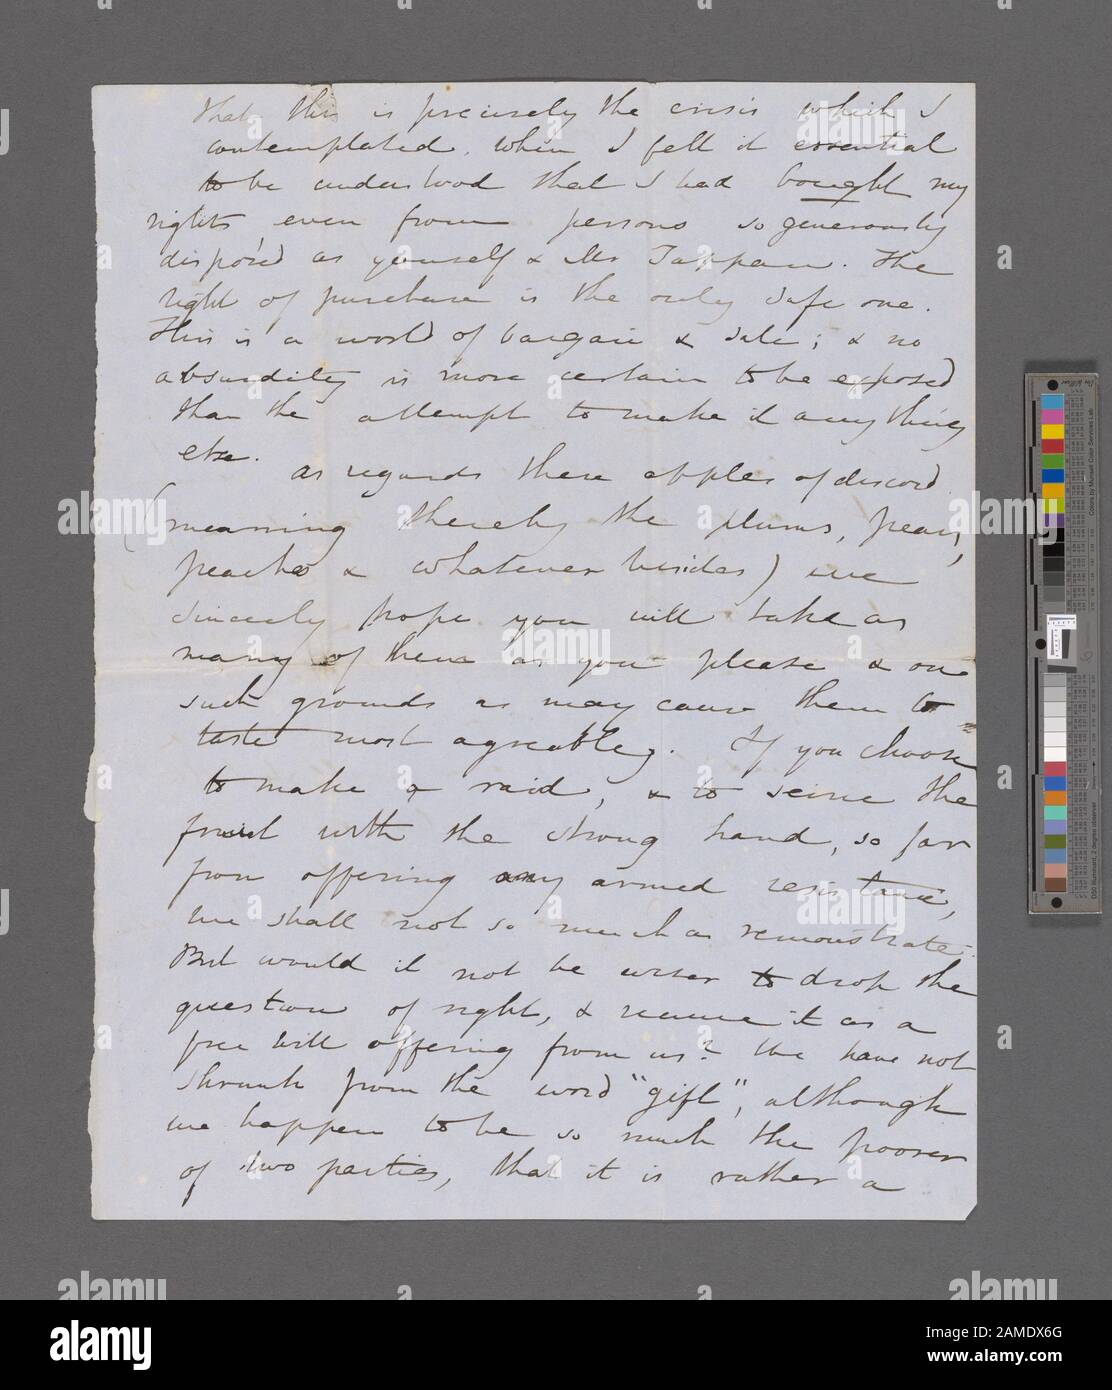 that this is precisely the crisis which I
contemplated, when I felt it essential
to be understood that I had bought my
rights, even from persons so generously
dispos'd as yourself & Mr Tappan. The
right of purchase is the only safe one.
This is a world of bargain & sale; & no
absurdity is more certain to be exposed
than the attempt to make it anything
else.
As regards these apples of discord
(meaning thereby the plums, pears,
peaches & whatever besides) we
sincerely hope you will take as
many of them as you please & on
such grounds as may cause them to
taste most agreeably. If you choose
to make a raid, & to seize the
fruit with the strong hand, so far
from offering any armed resistance,
we shall not so much as remonstrate.
But would it not be wiser to drop the
question of right, & receive it as a
free will offering from us? We have not
shrunk from the word "gift", although
we happen to be so much the poorer
of two parties, that it is rather a
alamy
Image ID: 2AMDX6G
www.alamy.com